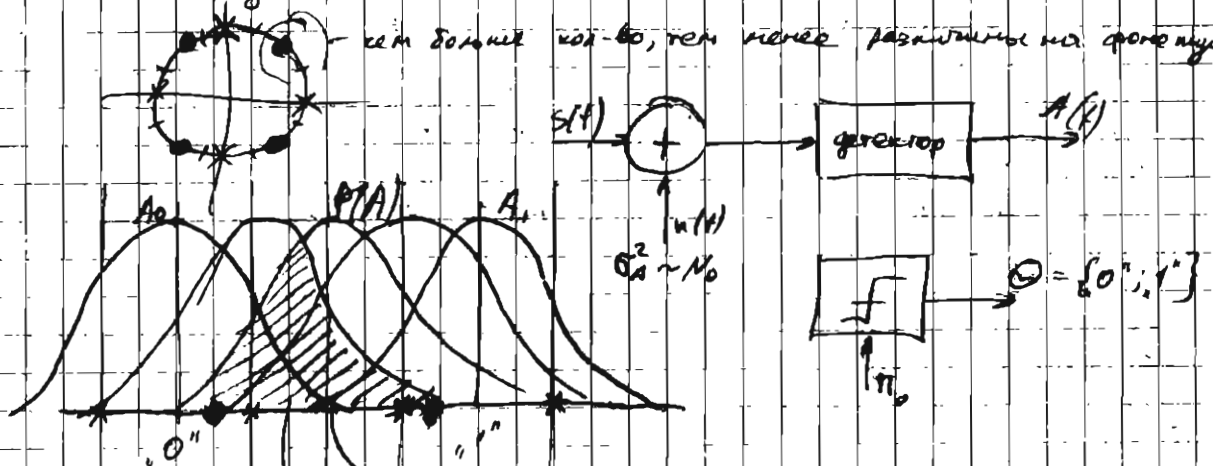 - чем больше кол-во, тем менее различимы на фоне
s(t)
+
детектор
A(t)
n(t)
σ_A² ~ N₀
A₀
P(A)
A₁
Θ = {„0"; „1"}
П₀
„0"
„1"